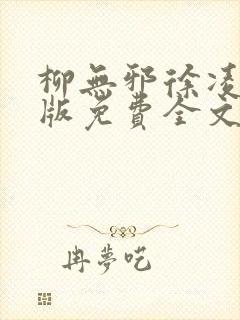 柳無邪徐凌
版免費全文
冉夢呓